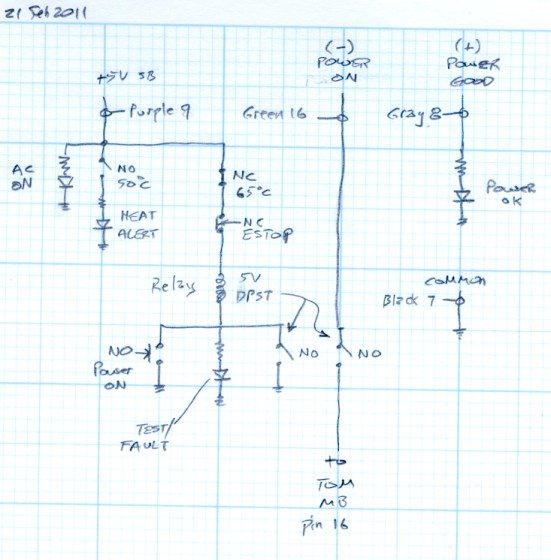 21 Feb 2011
(-)
POWER
ON
(+)
POWER
GOOD
+5V SB
Purple 9
Green 16
Gray 8
AC
ON
NO
50°C
HEAT
ALERT
NC
65°C
NC
ESTOP
POWER
OK
Relay
5V
DPST
COMMON
Black 7
NO
Power
ON
NO
NO
TEST/
FAULT
TO
TOM
MB
Pin 16